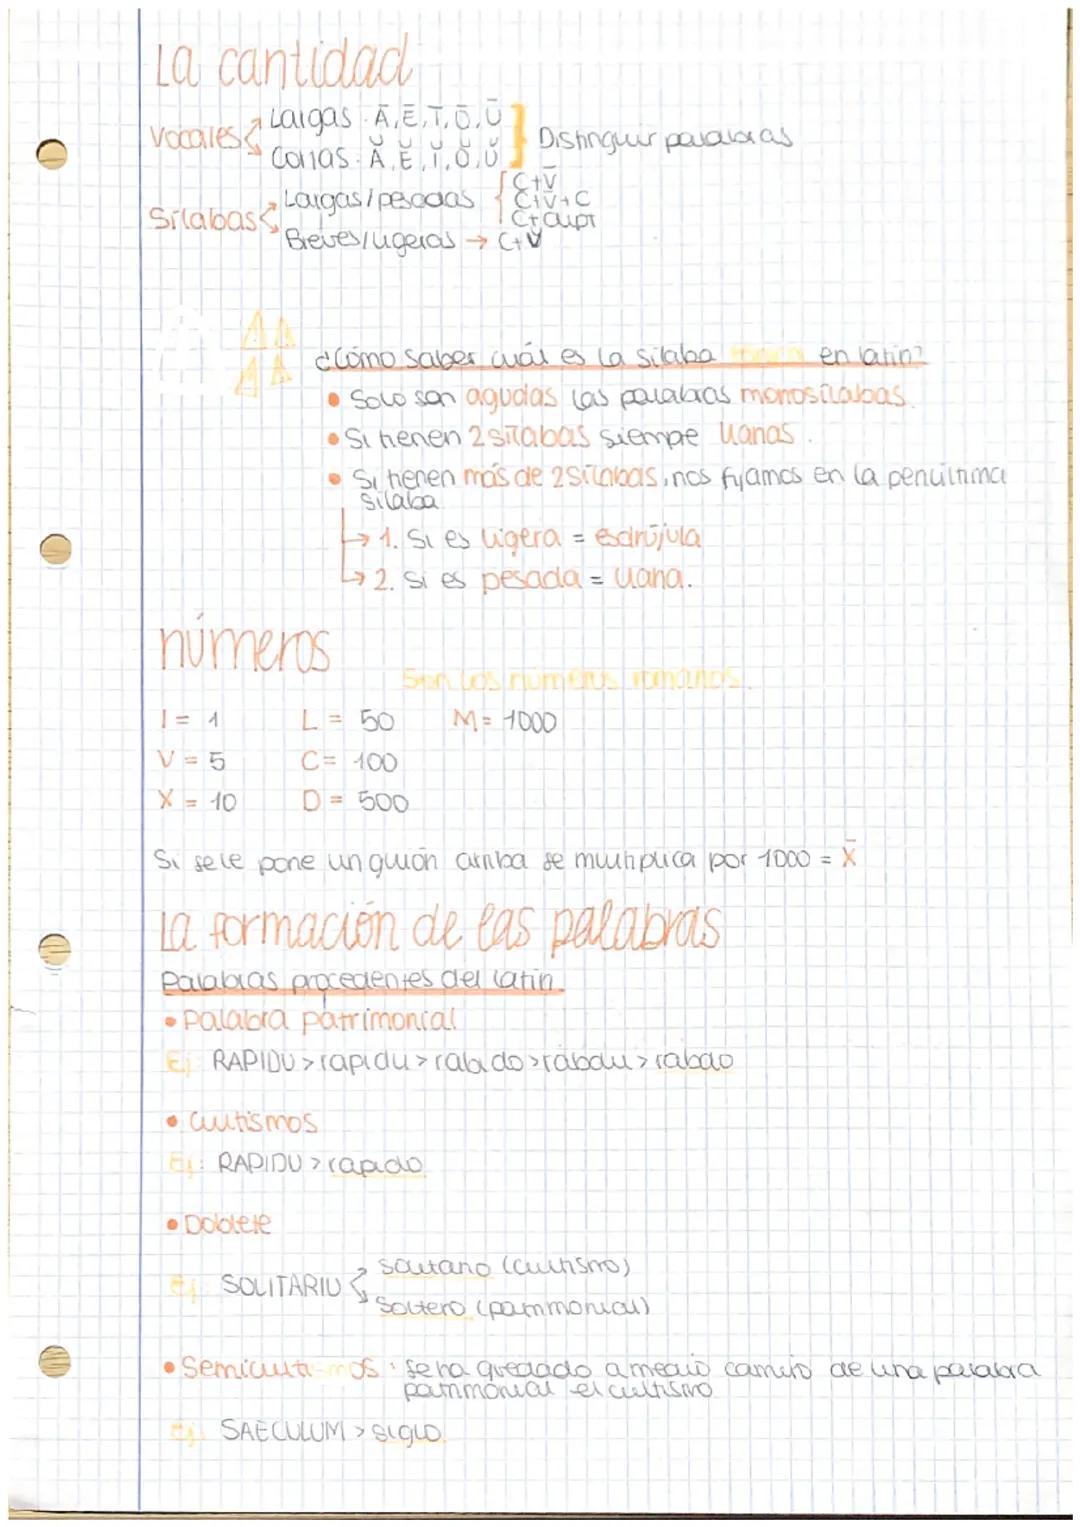 La cantidad
Vocales
Largas: Ā, Ē, Ī, Ō, Ū
Cortas: Ă, Ĕ, Ĭ, Ŏ, Ŭ
Distinguir palabras
Sílabas
Largas/pesadas
C+V̄
C+V+C
C+dipt
Breves/ligeras → C+V̆
¿Cómo saber cuál es la sílaba tónica en latín?
• Solo son agudas las palabras monosílabas.
• Si tienen 2 sílabas siempre llanas.
• Si tienen más de 2 sílabas, nos fijamos en la penúltima
sílaba
→ 1. Si es ligera = esdrújula
→ 2. Si es pesada = llana.
números
Son los números romanos.
I = 1 L = 50 M = 1000
V = 5 C = 100
X = 10 D = 500
Si se le pone un guión arriba se multiplica por 1000 = X̄
La formación de las palabras
Palabras procedentes del latín.
• Palabra patrimonial
Ej: RAPIDU > rapidu > rabido > rabdu > rabdo
• Cultismos
Ej: RAPIDU > rapido
• Doblete
Ej: SOLITARIU
solitario (cultismo)
Soltero (patrimonial)
• Semicultismos: se ha quedado a medio camino de una palabra
patrimonial el cultismo
Ej: SAECULUM > siglo.